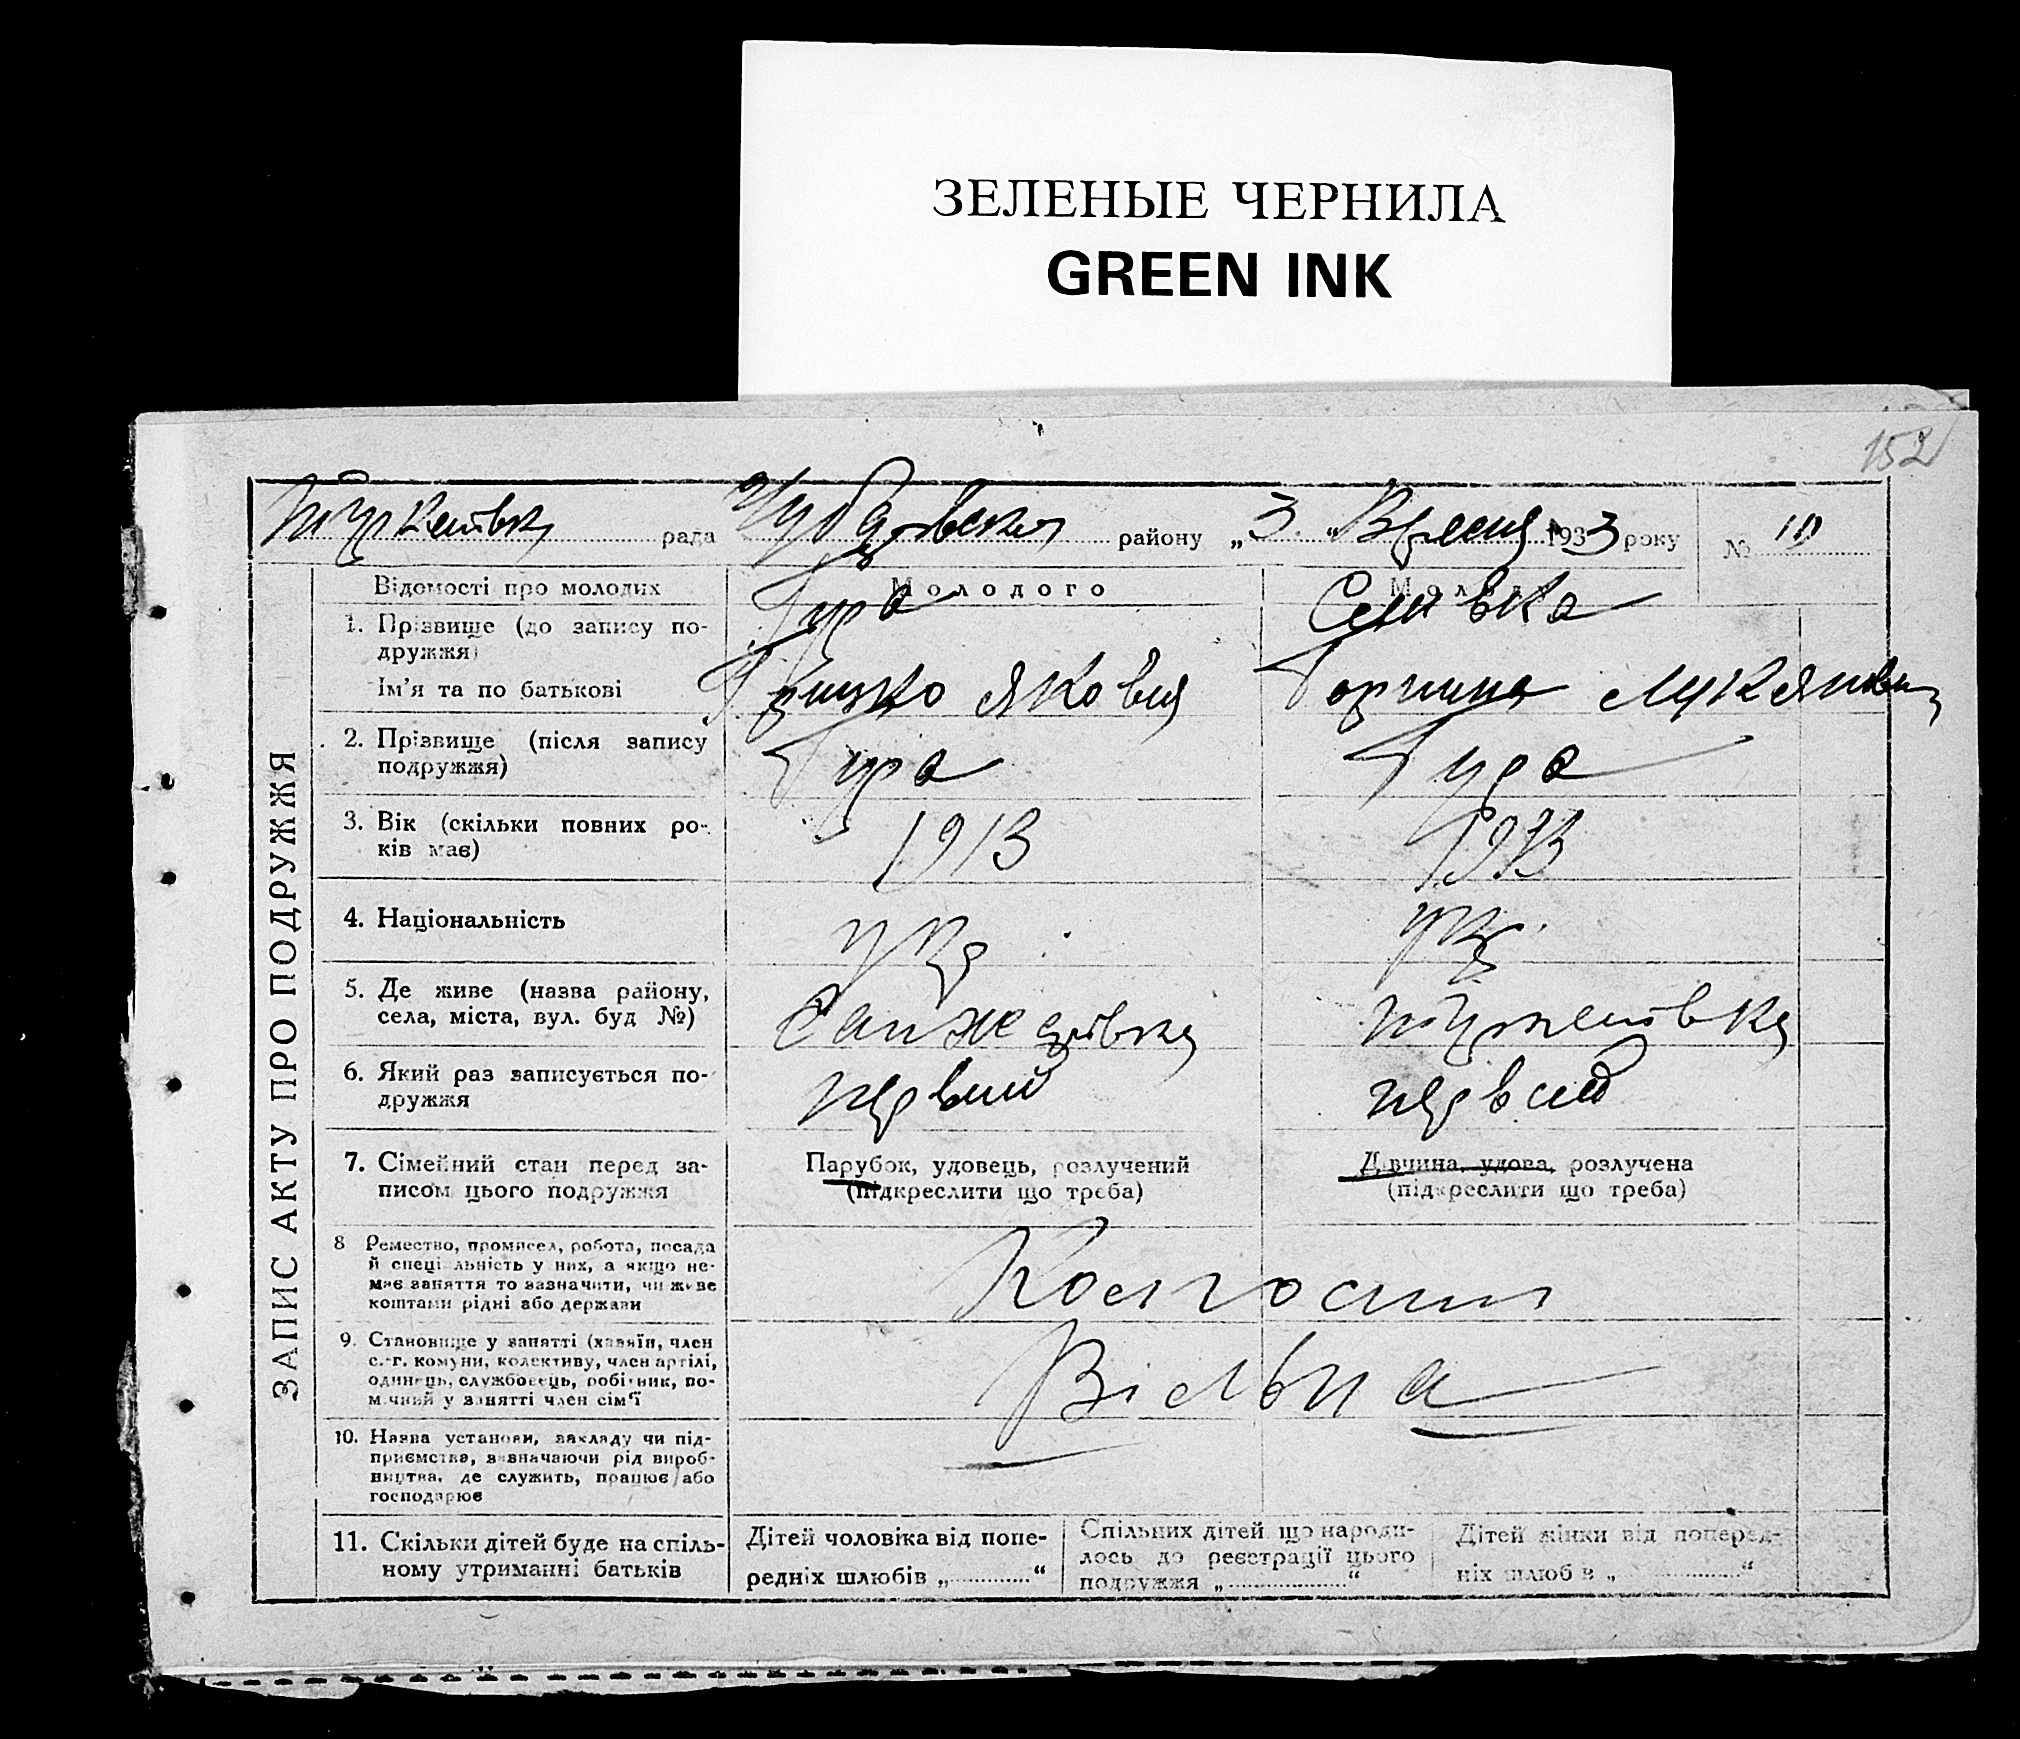 ЗЕЛЕНЫЕ ЧЕРНИЛА
GREEN INK
152
рада району „3 “ Вресня 1933 року № 10
ЗАПИС АКТУ ПРО ПОДРУЖЖЯ
Відомості про молодих Молодого Молодої
1. Прізвище (до запису по-
дружжя)
Гура
Ім'я та по батькові
Грицько Яковия
2. Прізвище (після запису
подружжя)
Гура Гура
3. Вік (скільки повних ро-
ків має)
1913 1913
4. Національність
укр укр.
5. Де живе (назва району,
села, міста, вул. буд №)
6. Який раз записується по-
дружжя
первий первий
7. Сімейний стан перед за-
писом цього подружжя
Парубок, удовець, розлучений
(підкреслити що треба)
Дівчина, удова, розлучена
(підкреслити що треба)
8 Ремество, промисел, робота, посада
й спеціальність у них, а якщо не-
має заняття то зазначити, чи живе
коштами рідні або держави
Колгосп
9. Становище у занятті (хазяїн, член
с.-г. комуни, колективу, член артілі,
одинець, службовець, робітник, по-
мічний у занятті член сім'ї
Вільна
10. Назва установи, закладу чи під-
приємства, зазначаючи рід вироб-
ництва, де служить, працює або
господарює
11. Скільки дітей буде на спіль-
ному утриманні батьків
Дітей чоловіка від попе-
редніх шлюбів „ “
Спільних дітей що народи-
лось до реєстрації цього
подружжя „ “
Дітей жінки від поперед-
ніх шлюбів „ “